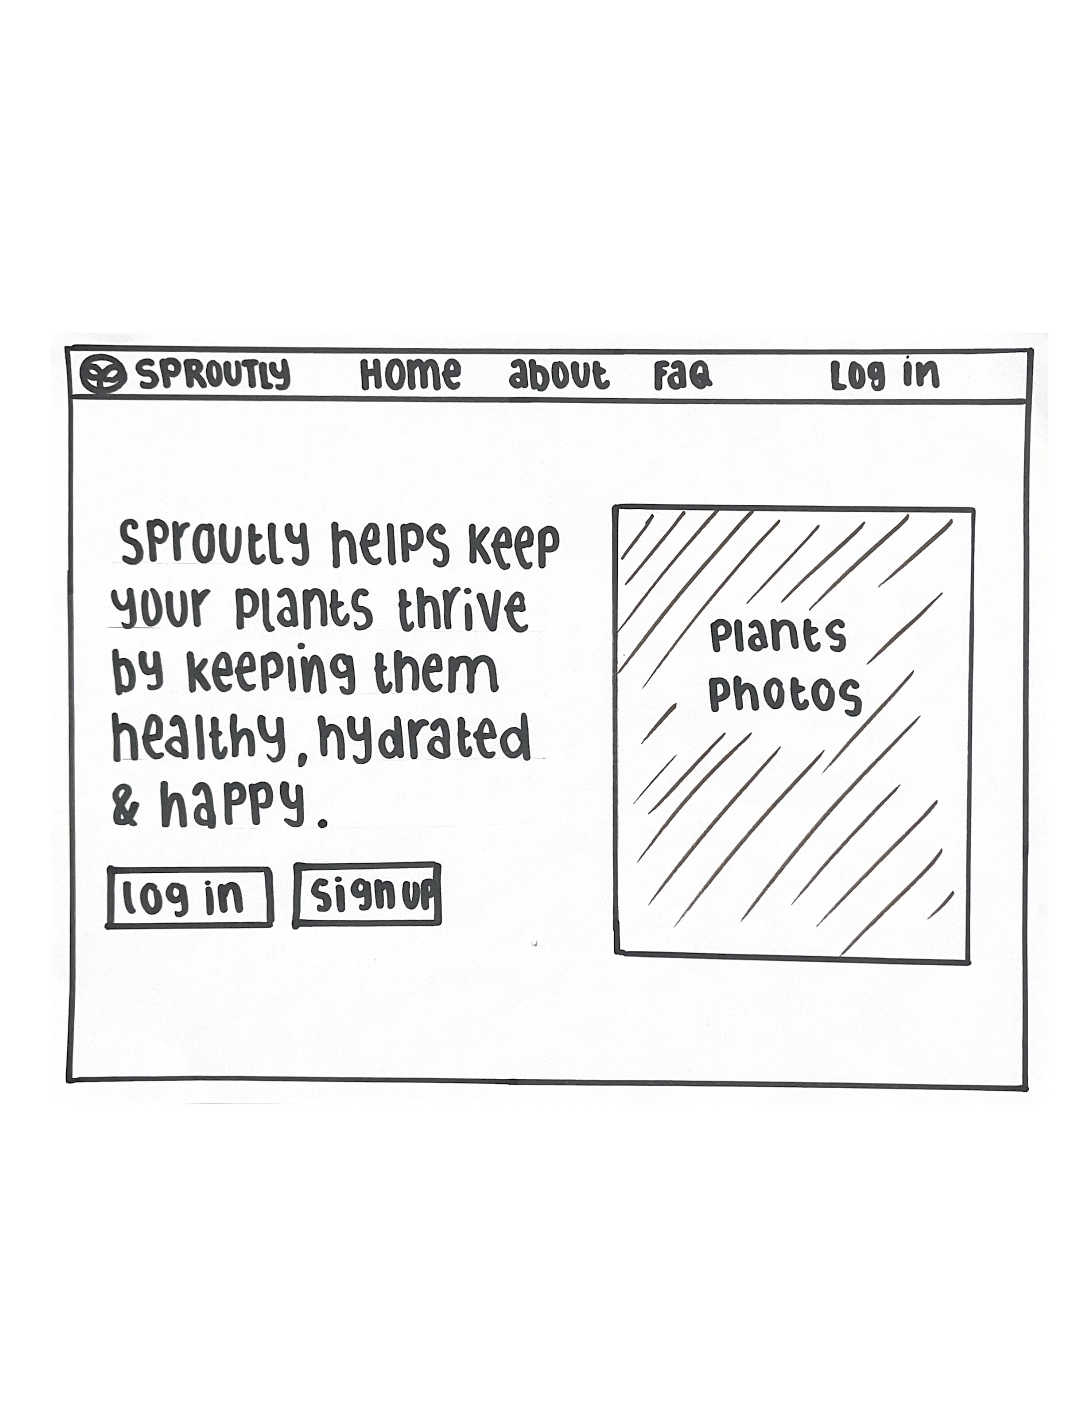 SPROUTLY Home about FaQ Log in
Sproutly helps keep
your plants thrive
by keeping them
healthy, hydrated
& happy.
log in sign up
Plants
Photos